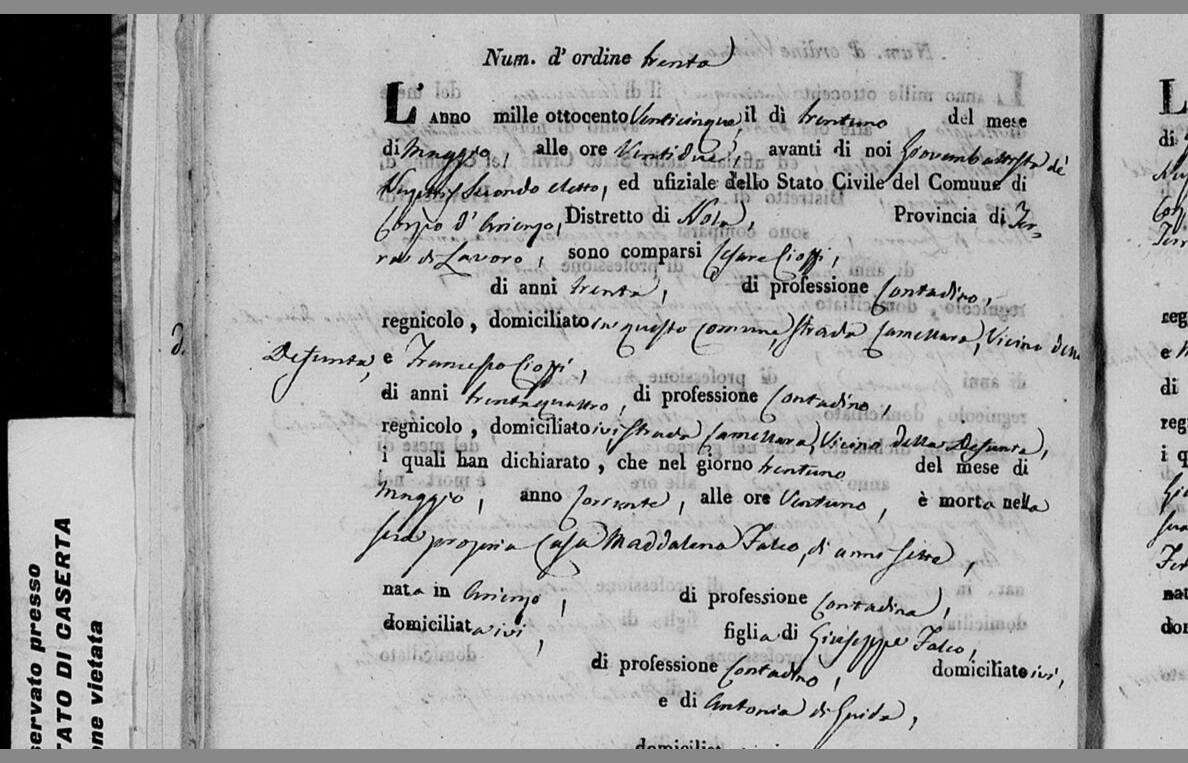 Num. d' ordine trenta
L' ANNO mille ottocento Venticinque, il dì trentuno del mese
di Maggio, alle ore Ventidue, avanti di noi Giovambattista de
Secondo eletto, ed ufiziale dello Stato Civile del Comune di
Corpo d' Arienzo, Distretto di Nola, Provincia di Ter-
ra di Lavoro, sono comparsi Cesare Cioffi,
di anni trenta, di professione Contadino,
regnicolo, domiciliato in questo Comune, strada Camellara, Vicino della
Defunta, e Francesco Cioffi,
di anni trentaquattro, di professione Contadino,
regnicolo, domiciliato ivi, strada Camellara, Vicino della Defunta,
i quali han dichiarato, che nel giorno trentuno del mese di
Maggio, anno Corrente, alle ore Ventuno, è morta nella
sua propria Casa Maddalena Falco, di anni sette,
nata in Arienzo, di professione Contadina,
domiciliata ivi, figlia di Giuseppe Falco,
di professione Contadino, domiciliato ivi,
e di Antonia di Guida,
domiciliat
d.
servato presso
TATO DI CASERTA
one vietata
L
di
reg
e
di
reg
i q
nat
dom